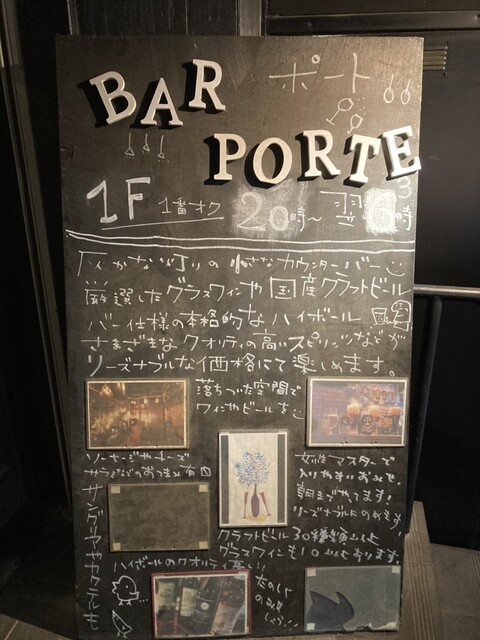 BAR ポート
PORTE
1F 1番オク 20時〜翌6時
灰かな灯りの小さなカウンターバー
厳選したグラスワインや国産クラフトビール
バー仕様の本格的なハイボール
さまざまなクオリティの高いスピリッツなどが
リーズナブルな価格にて楽しめます。
落ちついた空間で
ワインやビールを
ソーセージやチーズ
サラミなどのおつまみ有
女性マスターで
入りやすいお店です
朝までやってます!
リーズナブルにのめます!
サングリアやカクテルも
クラフトビール30種類以上
グラスワインも10以上あります。
ハイボールのクオリティ高い!!
たのしい